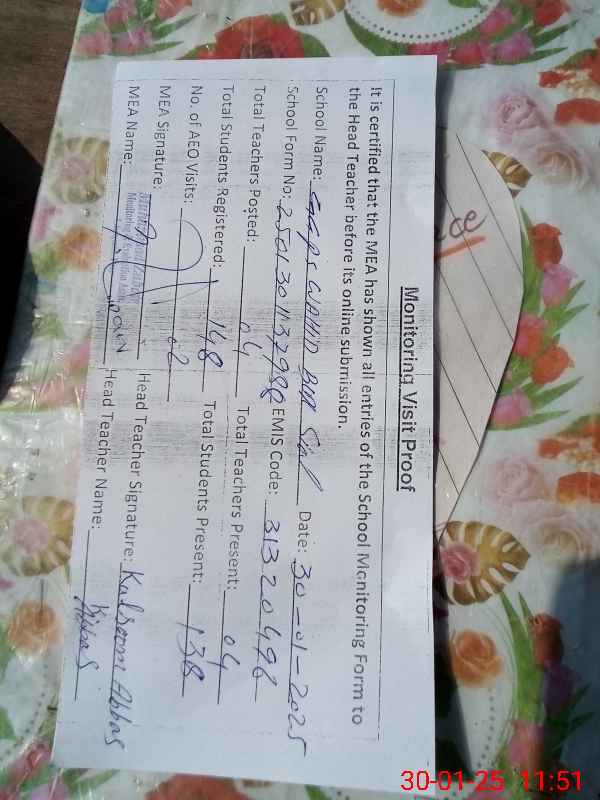 Monitoring Visit Proof
It is certified that the MEA has shown all entries of the School Monitoring Form to
the Head Teacher before its online submission.
School Name: WAHID Date: 30-01-2025
School Form No: EMIS Code: 31320496
Total Teachers Posted: 04 Total Teachers Present: 04
Total Students Registered: 148 Total Students Present: 138
No. of AEO Visits: 02
MEA Signature: Head Teacher Signature: Kalsoom Abbas
MEA Name: Head Teacher Name: Abbas
30-01-25 11:51